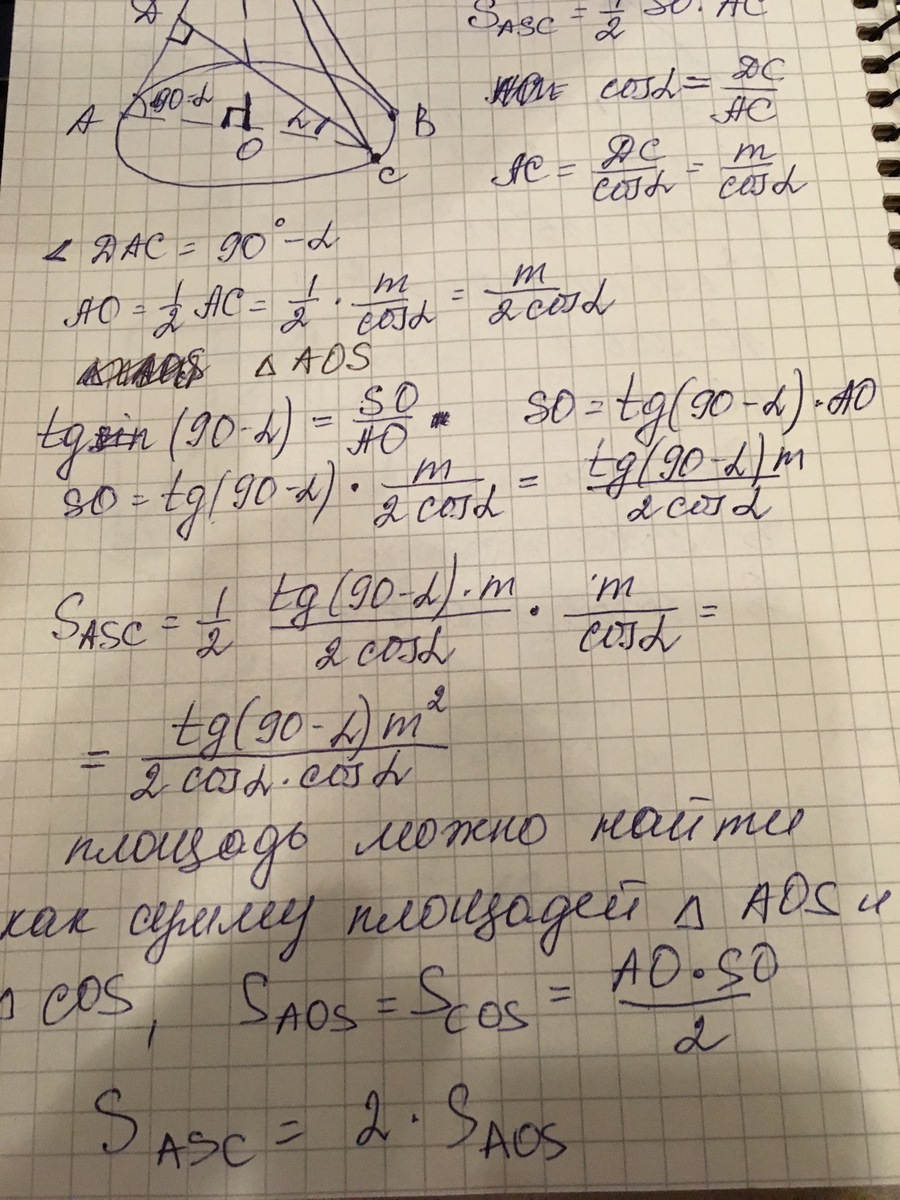 S_ASC = 1/2 SO · AC
D
A 90-α O α B
C
cosα = DC/AC
AC = DC/cosα = m/cosα
∠ DAC = 90° - α
AO = 1/2 AC = 1/2 · m/cosα = m/2cosα
Δ AOS
tg (90-α) = SO/AO SO = tg(90-α) · AO
SO = tg(90-α) · m/2cosα = tg(90-α)m/2cosα
S_ASC = 1/2 tg(90-α)·m/2cosα · m/cosα =
= tg(90-α)m²/2cosα·cosα
площадь можно найти
как сумму площадей Δ AOS и
Δ COS, S_AOS = S_COS = AO·SO/2
S_ASC = 2 · S_AOS